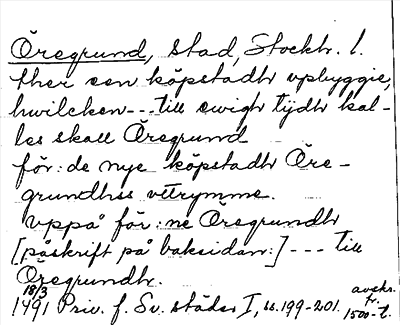 Öregrund, stad, Stockh. l.
ther een köpstadh vpbyggie,
hwilcken --- till ewigh tijdh kal-
les skall Öregrund
för: de nye köpstadh Öre-
grundhss vttrymme.
vppå för: ne Öregrundh
[påskrift på baksidan:] --- till
Öregrundh.
18/3 avskr.
1491 Priv. f. Sv. städer I, ss. 199-201. fr. 1500-t.